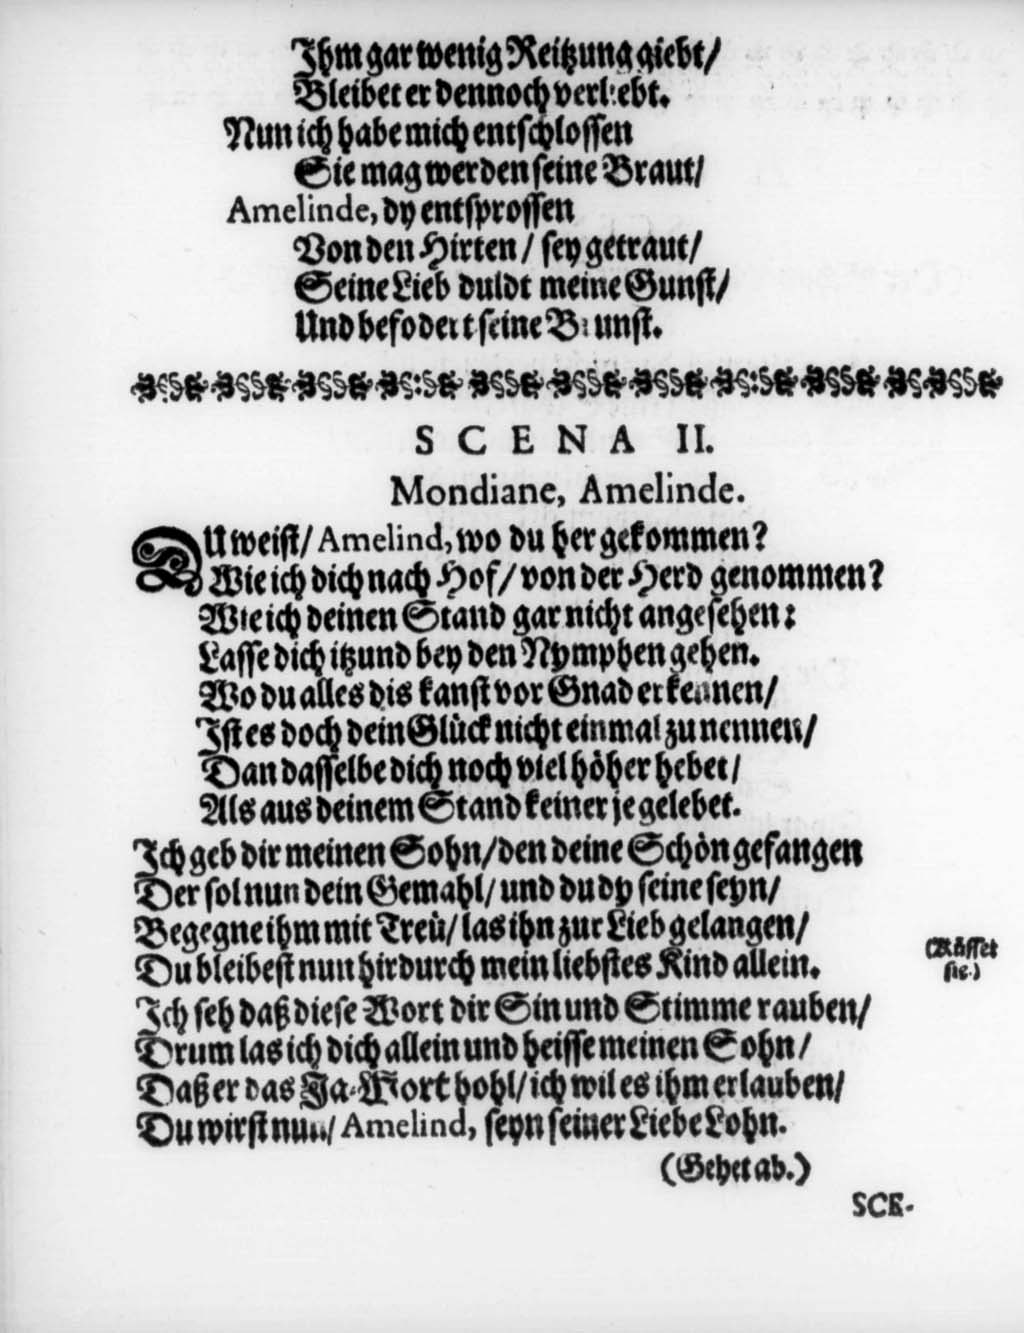 Ihm gar wenig Reitzung giebt/
Bleibet er dennoch verliebt.
Nun ich habe mich entschlossen
Sie mag werden seine Braut/
Amelinde, dy entsprossen
Von den Hirten / sey getraut/
Seine Lieb duldt meine Gunst/
Und befodert seine Brunst.
SCENA II.
Mondiane, Amelinde.
DU weist/ Amelind, wo du her gekommen?
Wie ich dich nach Hof/ von der Herd genommen?
Wie ich deinen Stand gar nicht angesehen:
Lasse dich itzund bey den Nymphen gehen.
Wo du alles dis kanst vor Gnad erkennen/
Ist es doch dein Glück nicht einmal zu nennen/
Dan dasselbe dich noch viel höher hebet/
Als aus deinem Stand keiner je gelebet.
Ich geb dir meinen Sohn/ den deine Schön gefangen
Der sol nun dein Gemahl/ und du dy seine seyn/
Begegne ihm mit Treü/ las ihn zur Lieb gelangen/
Du bleibest nun hirdurch mein liebstes Kind allein.
(Küsset
sie.)
Ich seh daß diese Wort dir Sin und Stimme rauben/
Drum las ich dich allein und heisse meinen Sohn/
Daß er das Ja-Wort hohl/ ich wil es ihm erlauben/
Du wirst nun/ Amelind, seyn seiner Liebe Lohn.
(Gehet ab.)
SCE-